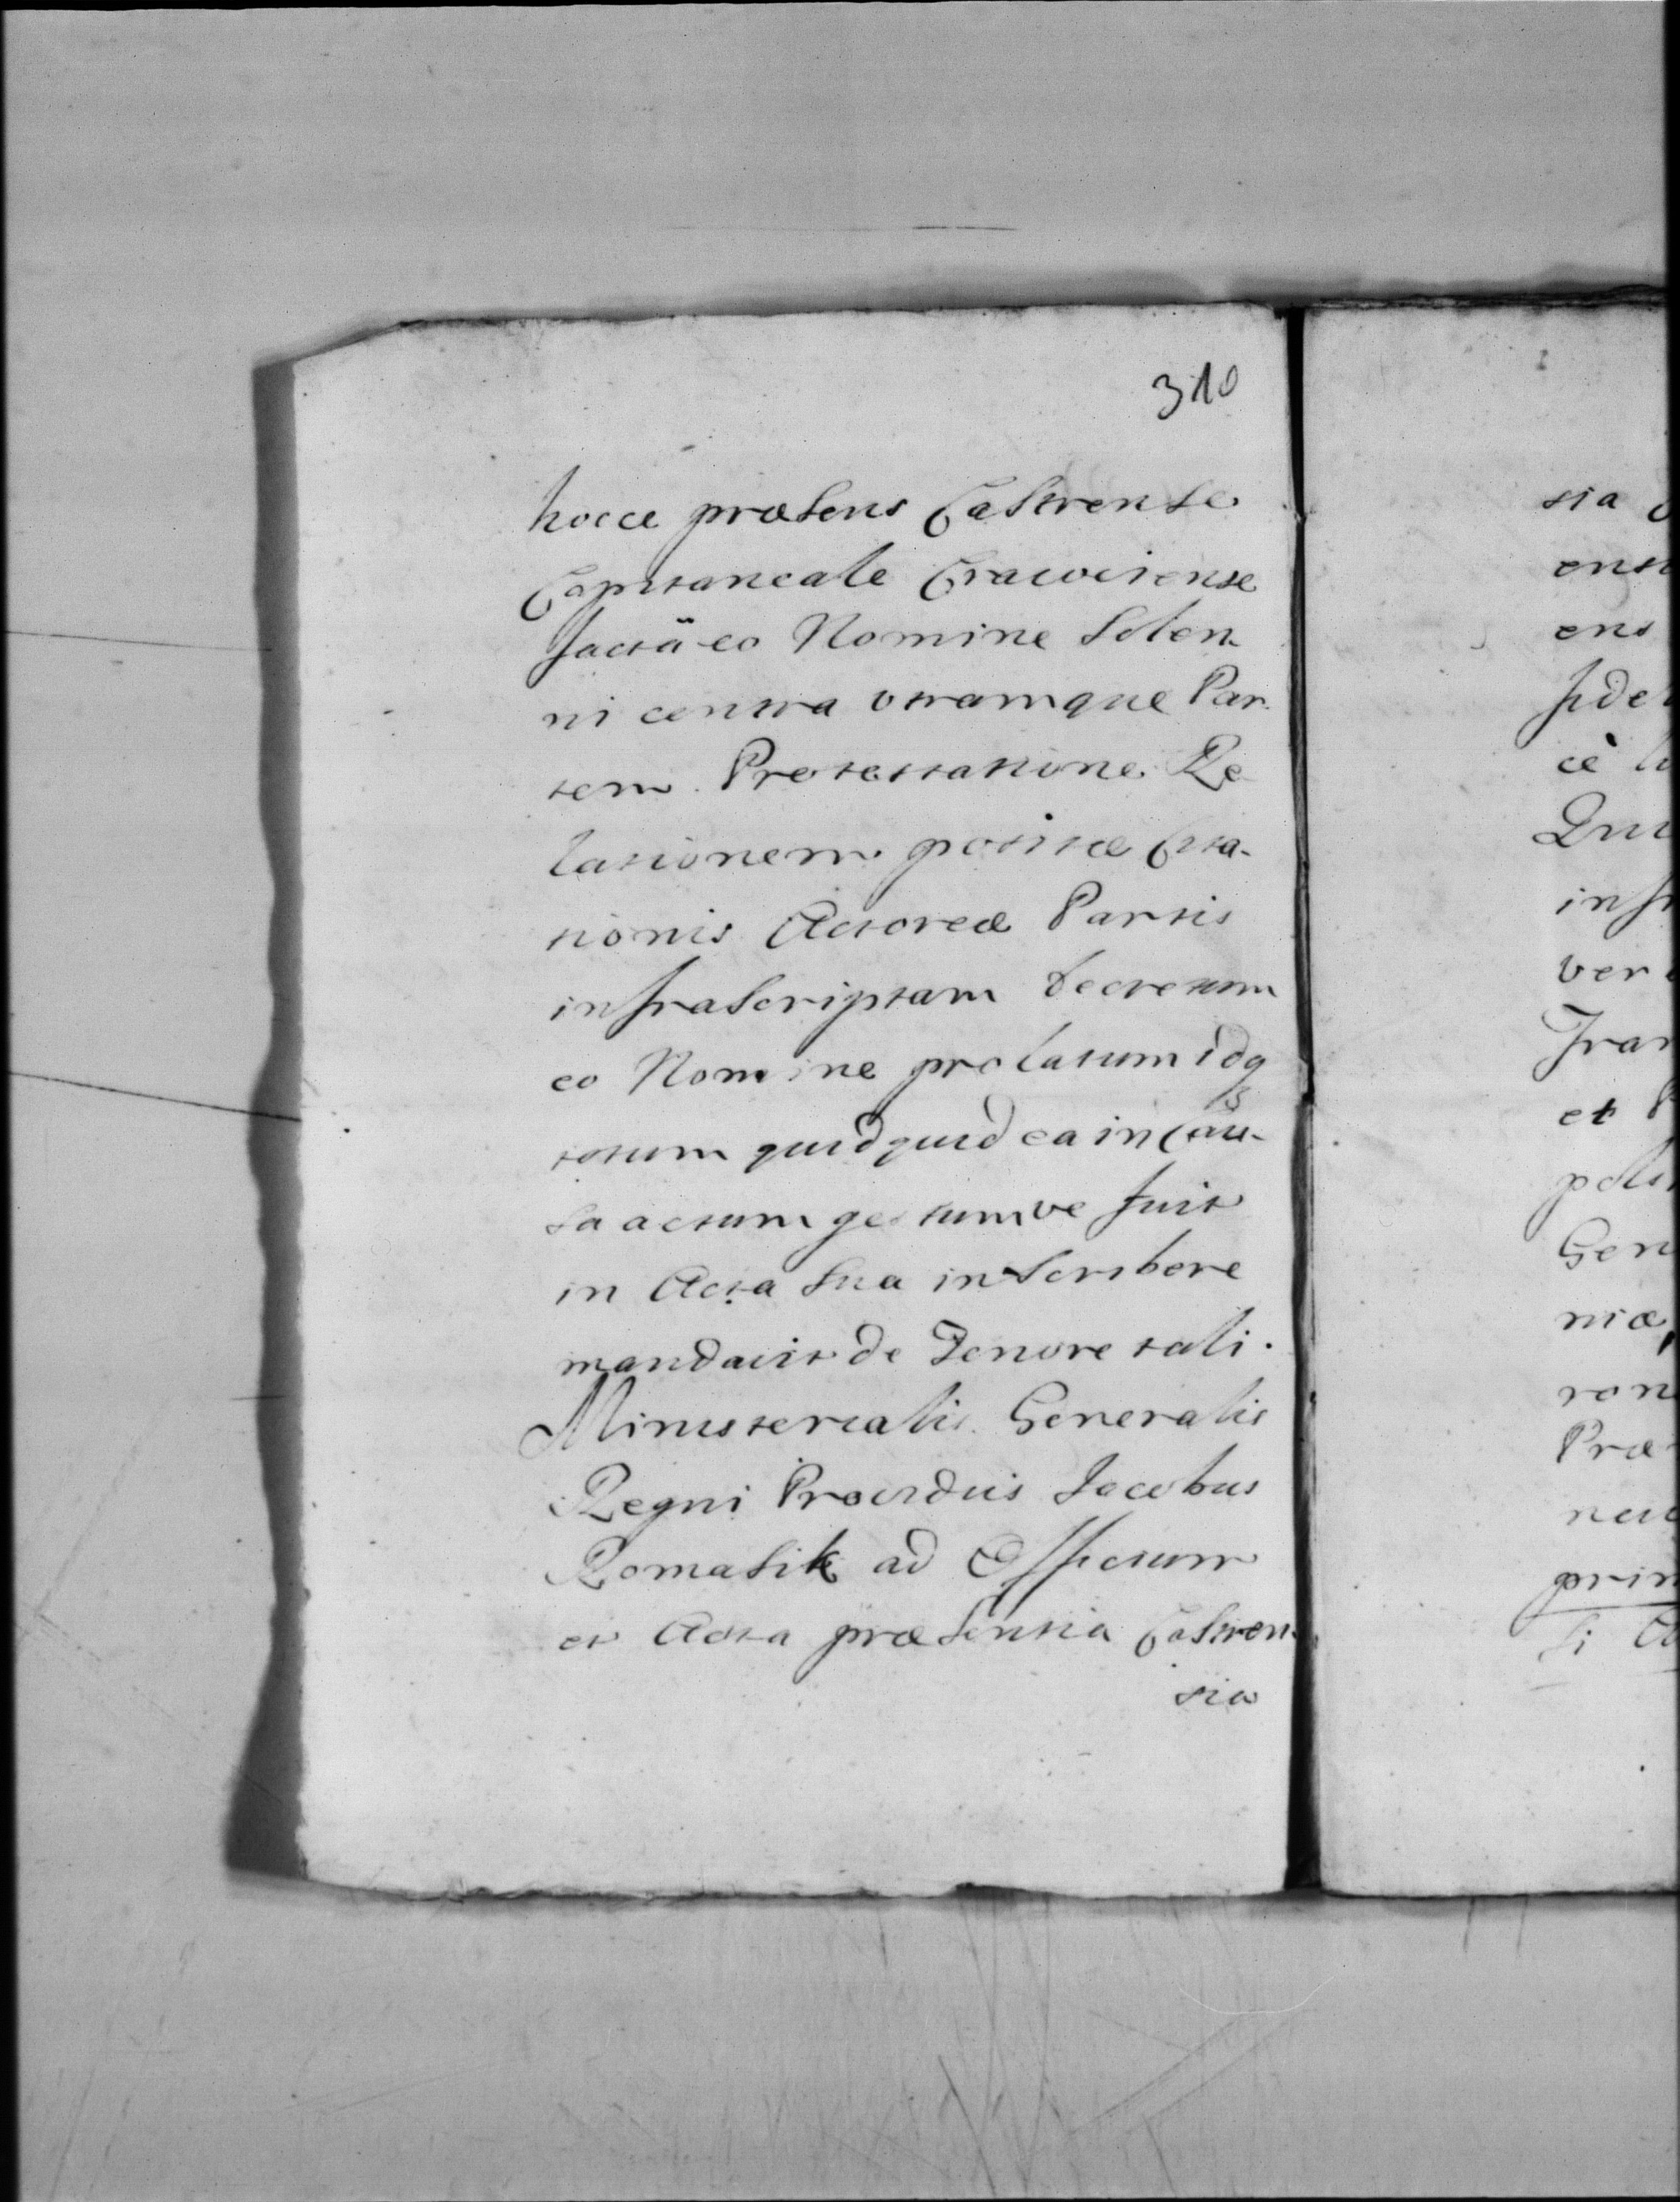 310
hocce præsens Castrense
Capitaneale Cracoviense
factâ eo Nomine Solen
ni contra utramque Par
tem Protestatione Re
lationem positæ Cita-
tionis Actoreæ Partis
infrascriptam Decretum
eo Nomine prolatum idq
totum quidquid ea in Cau-
sa actum gestumve fuit
in Acta Sua inscribere
mandavit de Tenore tali.
Ministerialis Generalis
Regni Providus Jacobus
Romasik ad Officium
et Acta præsentia Castren-
sia
sia
ens
fide
cè
infr
ver
Fran
et P
Gen
niæ,
ron
Præ
prin
si